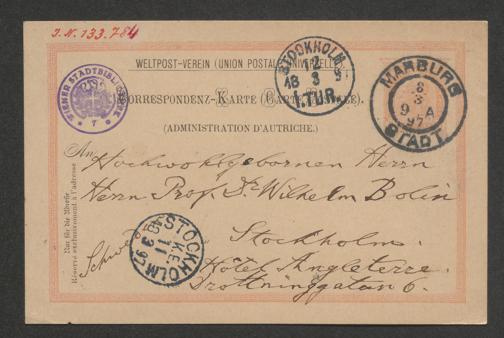 J.N. 133.784
WELTPOST-VEREIN (UNION POSTALE UNIVERSELLE).
CORRESPONDENZ-KARTE (CARTE POSTALE).
(ADMINISTRATION D'AUTRICHE.)
WIENER STADTBIBLIOTHEK
STOCKHOLM
12
18 3 97
1. TUR.
MARBURG
8
3
9 A
97
STADT
An Hochwohlgebornen Herrn
Herrn Prof. Dr Wilhelm Bolin
Stockholm.
Hôtel Angleterre.
Drottninggatan 6.
Nur für die Adresse
Réservé exclusivement à l'adresse
STOCKHOLM
K.E.
11
3 97